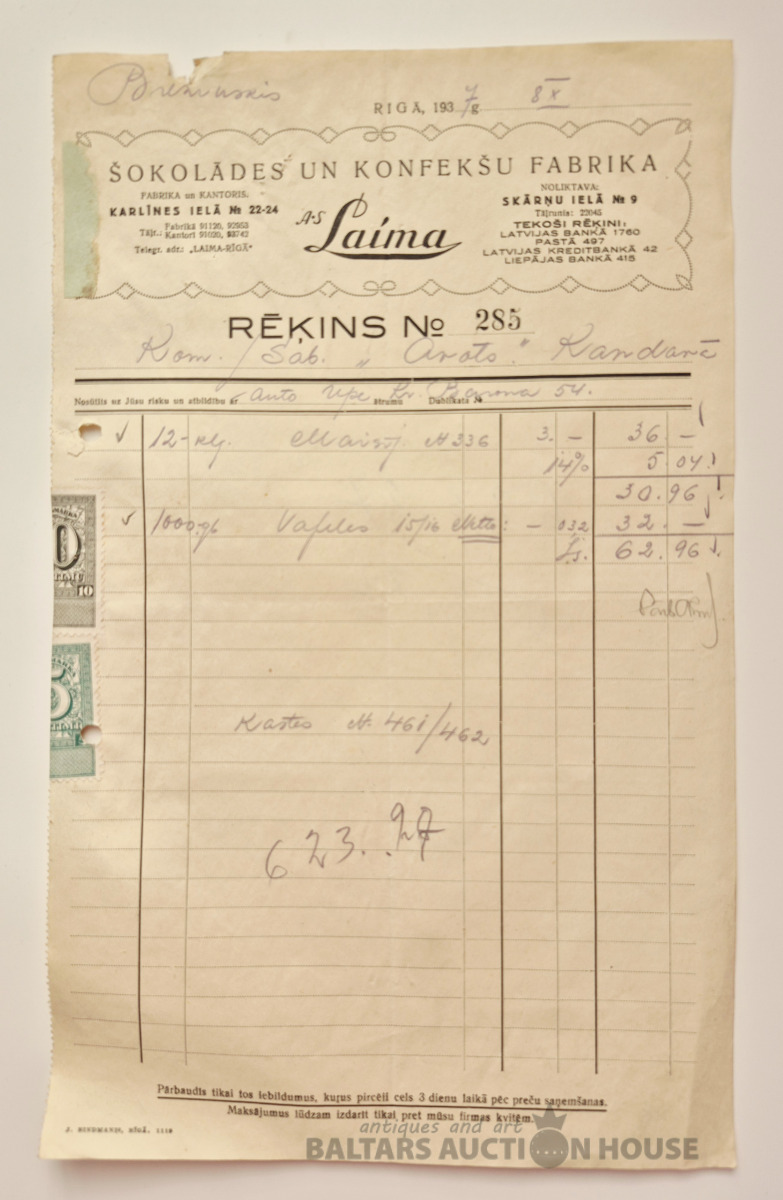 RĪGĀ, 1937 g 8 X
ŠOKOLĀDES UN KONFEKŠU FABRIKA
FABRIKA un KANTORIS:
KARLĪNES IELĀ № 22-24
Tāļr.: Fabrikā 91120, 92953
Kantorī 91020,
Telegr. adr.: „LAIMA-RĪGĀ"
A-S Laima
NOLIKTAVA:
SKĀRŅU IELĀ № 9
Tāļrunis: 22045
TEKOŠI RĒĶINI:
LATVIJAS BANKĀ 1760
PASTĀ 497
LATVIJAS KREDITBANKĀ 42
LIEPĀJAS BANKĀ 415
RĒĶINS № 285
Kom. / Sab. „Arots" Kandavā
Nosūtīts uz Jūsu risku un atbildību ar auto Upe Kr. Barona 54.
ātrumu Dublikata №
12- N 336 3. – 36 –
14% 5 04
30.96
1000 gb Vafeles 15/16 Netto: – 032 32. –
Ls. 62.96
Kastes N. 461/462
623..27
10
5
Pārbaudīs tikai tos iebildumus, kuŗus pircēji cels 3 dienu laikā pēc preču saņemšanas.
Maksājumus lūdzam izdarīt tikai pret mūsu firmas kvītēm.
J. BINEMANIS, RĪGĀ.
antiques and art
BALTARS AUCTION HOUSE